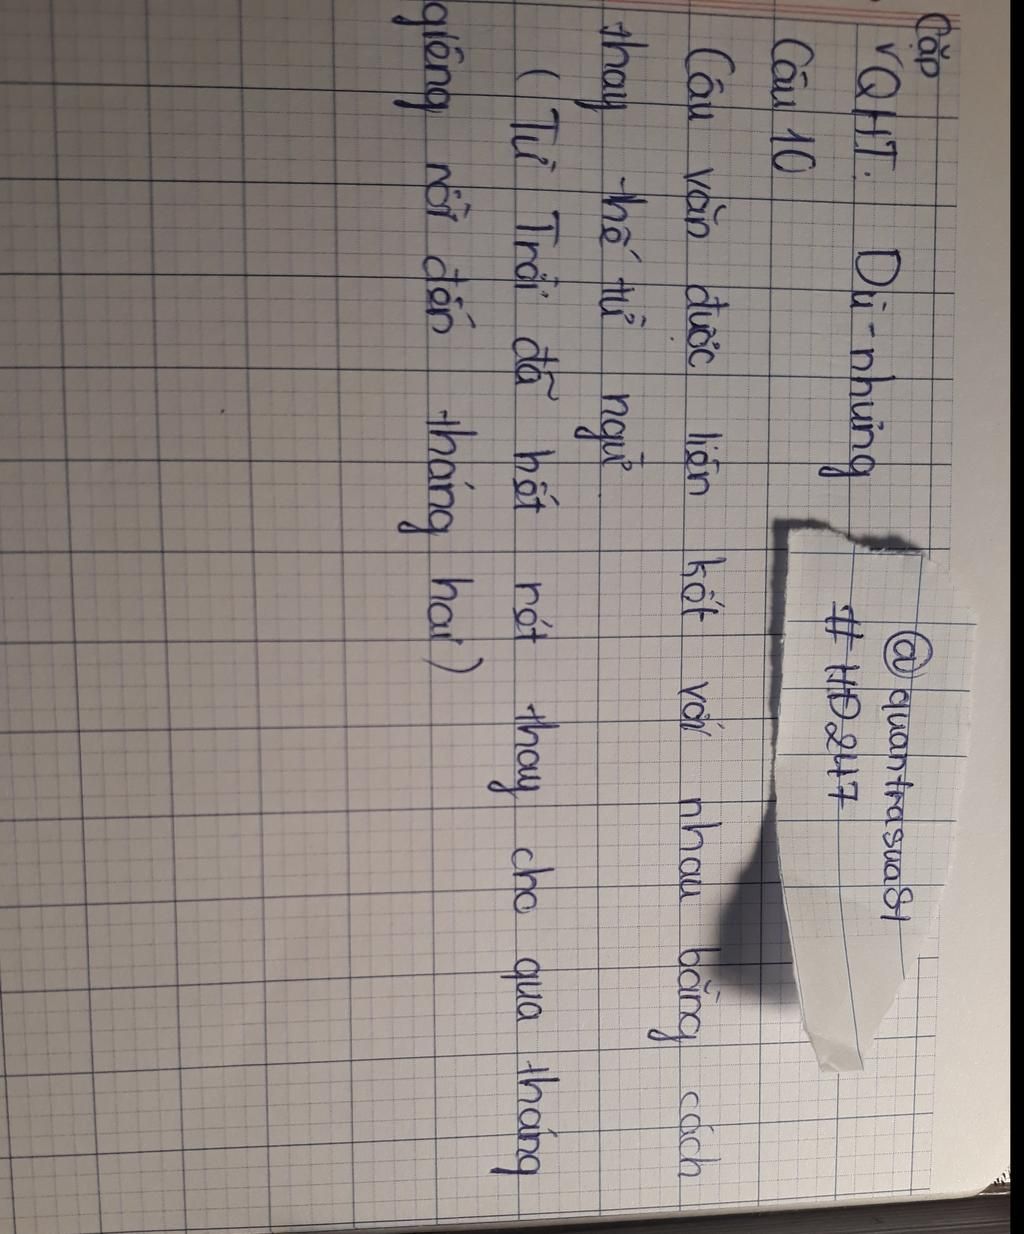 Cặp
QHT: Dù - nhưng
Câu 10
Câu văn được liên kết với nhau bằng cách
thay thế từ ngữ
( Từ Trời đã hết rét thay cho qua tháng
giêng rồi đến tháng hai )
@quantrasua81
#HĐ247